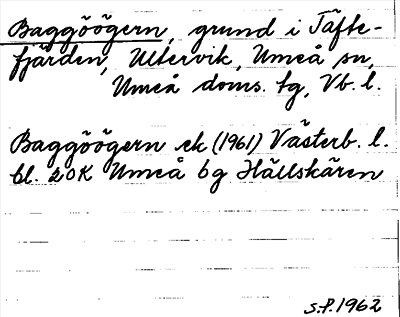 Baggöögern, grund i Täfte-
fjärden, Ultervik, Umeå sn,
Umeå doms. tg, Vb. l.
Baggöögern ek (1961) Västerb. l.
bl. 20K Umeå bg Hällskären
S.P. 1962